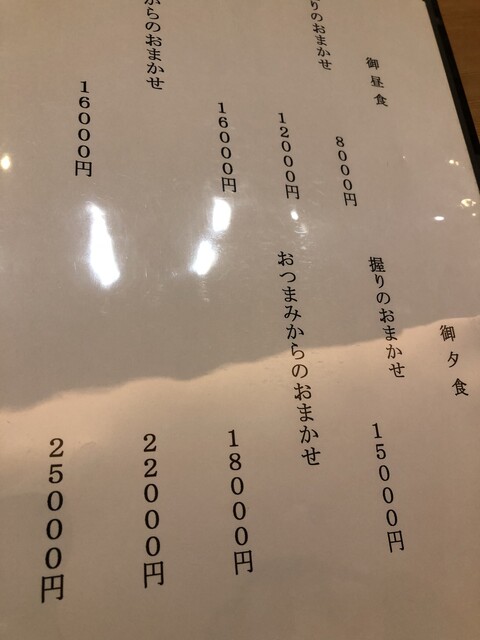 御昼食
りのおまかせ 8000円
12000円
16000円
からのおまかせ
16000円
御夕食
握りのおまかせ 15000円
おつまみからのおまかせ
18000円
22000円
25000円